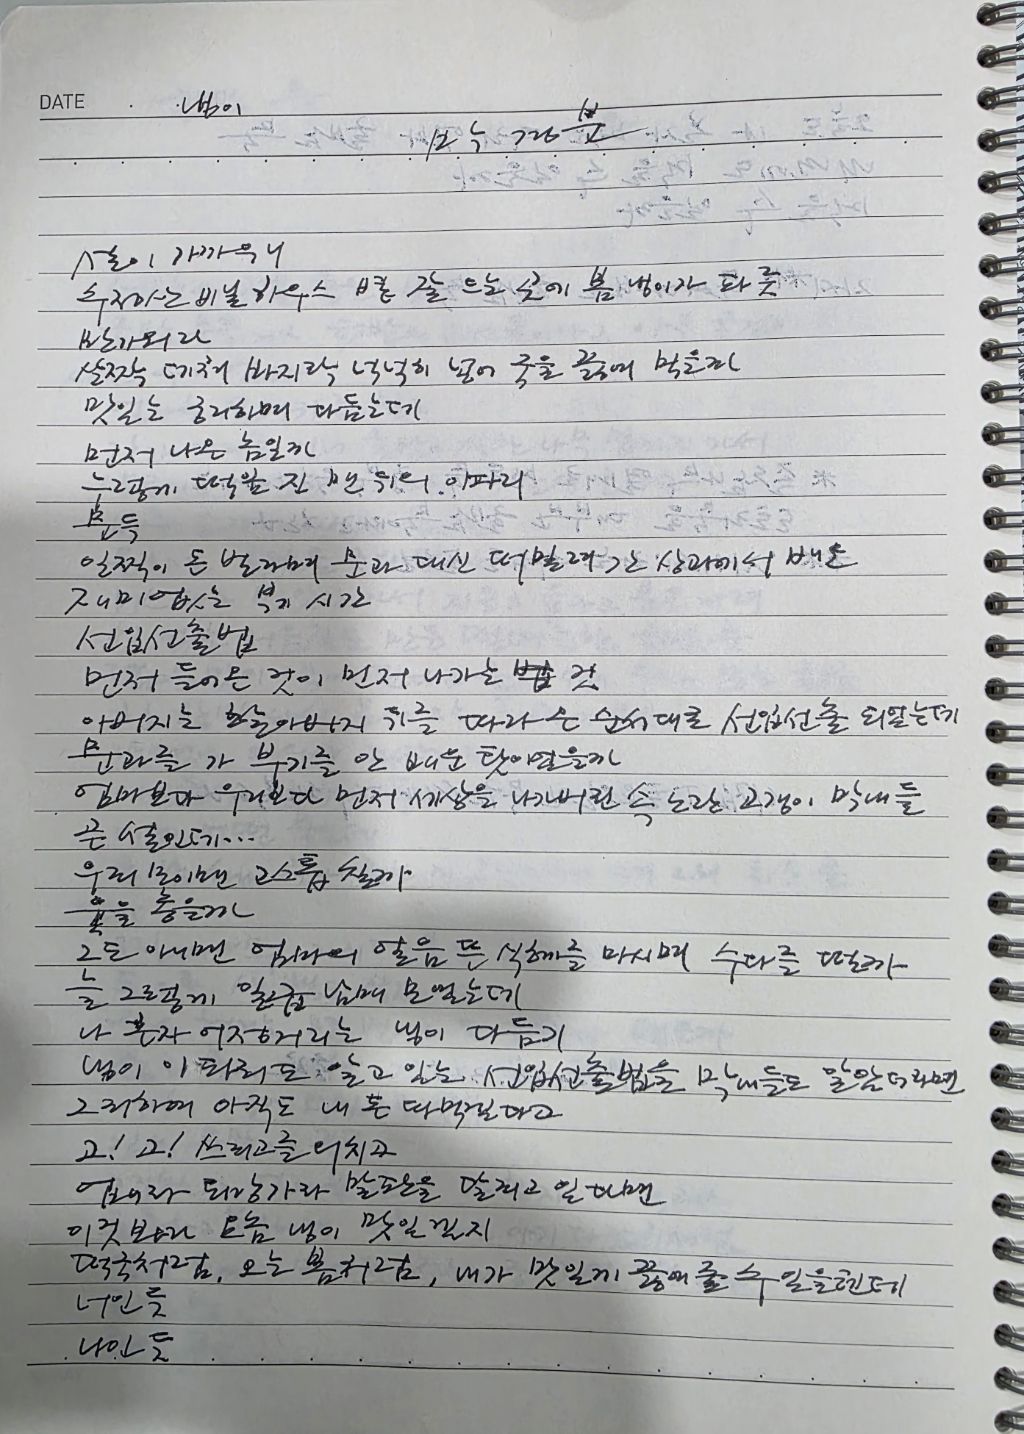 DATE 냉이
설이 가까우니
추자아는 비닐하우스 밭 갈 으는 곳에 봄 냉이가 파릇
반가워라
살짝 데쳐 바지락 넉넉히 넣어 국을 끓여 먹을까
맛있는 궁리하며 다듬는데
먼저 나온 놈일까
누렇게 떡잎 진 맨 뒤의 이파리
문득
일찍이 돈 벌라며 문과 대신 떠밀려 간 상과에서 배운
재미없는 부기 시간
선입선출법
먼저 들어온 것이 먼저 나가는 것
아버지는 할아버지 뒤를 따라 온 순서대로 선입선출 되었는데
문과를 가 부기를 안 배운 탓이었을까
엄마보다 우리보다 먼저 세상을 나가버린 속 노란 고갱이 막내들
곧 설인데...
우리 모이면 고스톱 칠까
윷을 놓을까
그도 아니면 엄마의 얼음 뜬 식혜를 마시며 수다를 떨까
늘 그렇게 일곱 남매 모였는데
나 혼자 어정거리는 냉이 다듬기
냉이 이파리도 알고 있는 선입선출법을 막내들도 말았더라면
그리하여 아직도 내 돈 따먹겠다고
고! 고! 쓰리고를 외치고
엄마랑 퇴강가라 말판을 달리고 있다면
이것 보다 요놈 냉이 맛있겠지
떡국처럼, 오는 봄처럼, 내가 맛있게 끓여줄 수 있을텐데
너인 듯
나인 듯